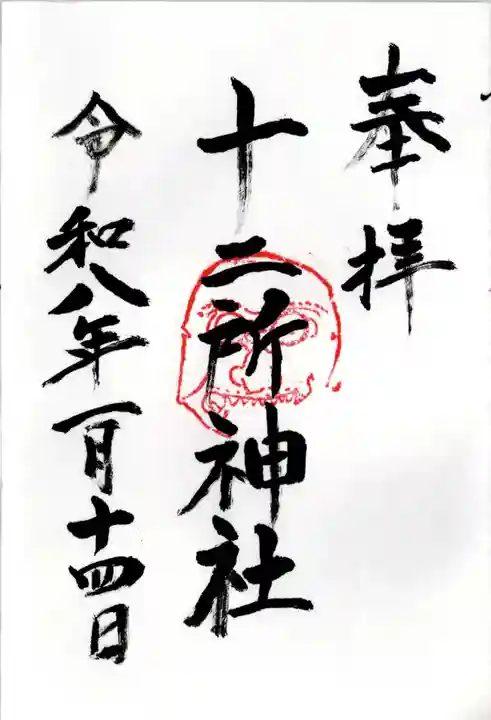 奉拝
十二所神社
令和八年一月十四日